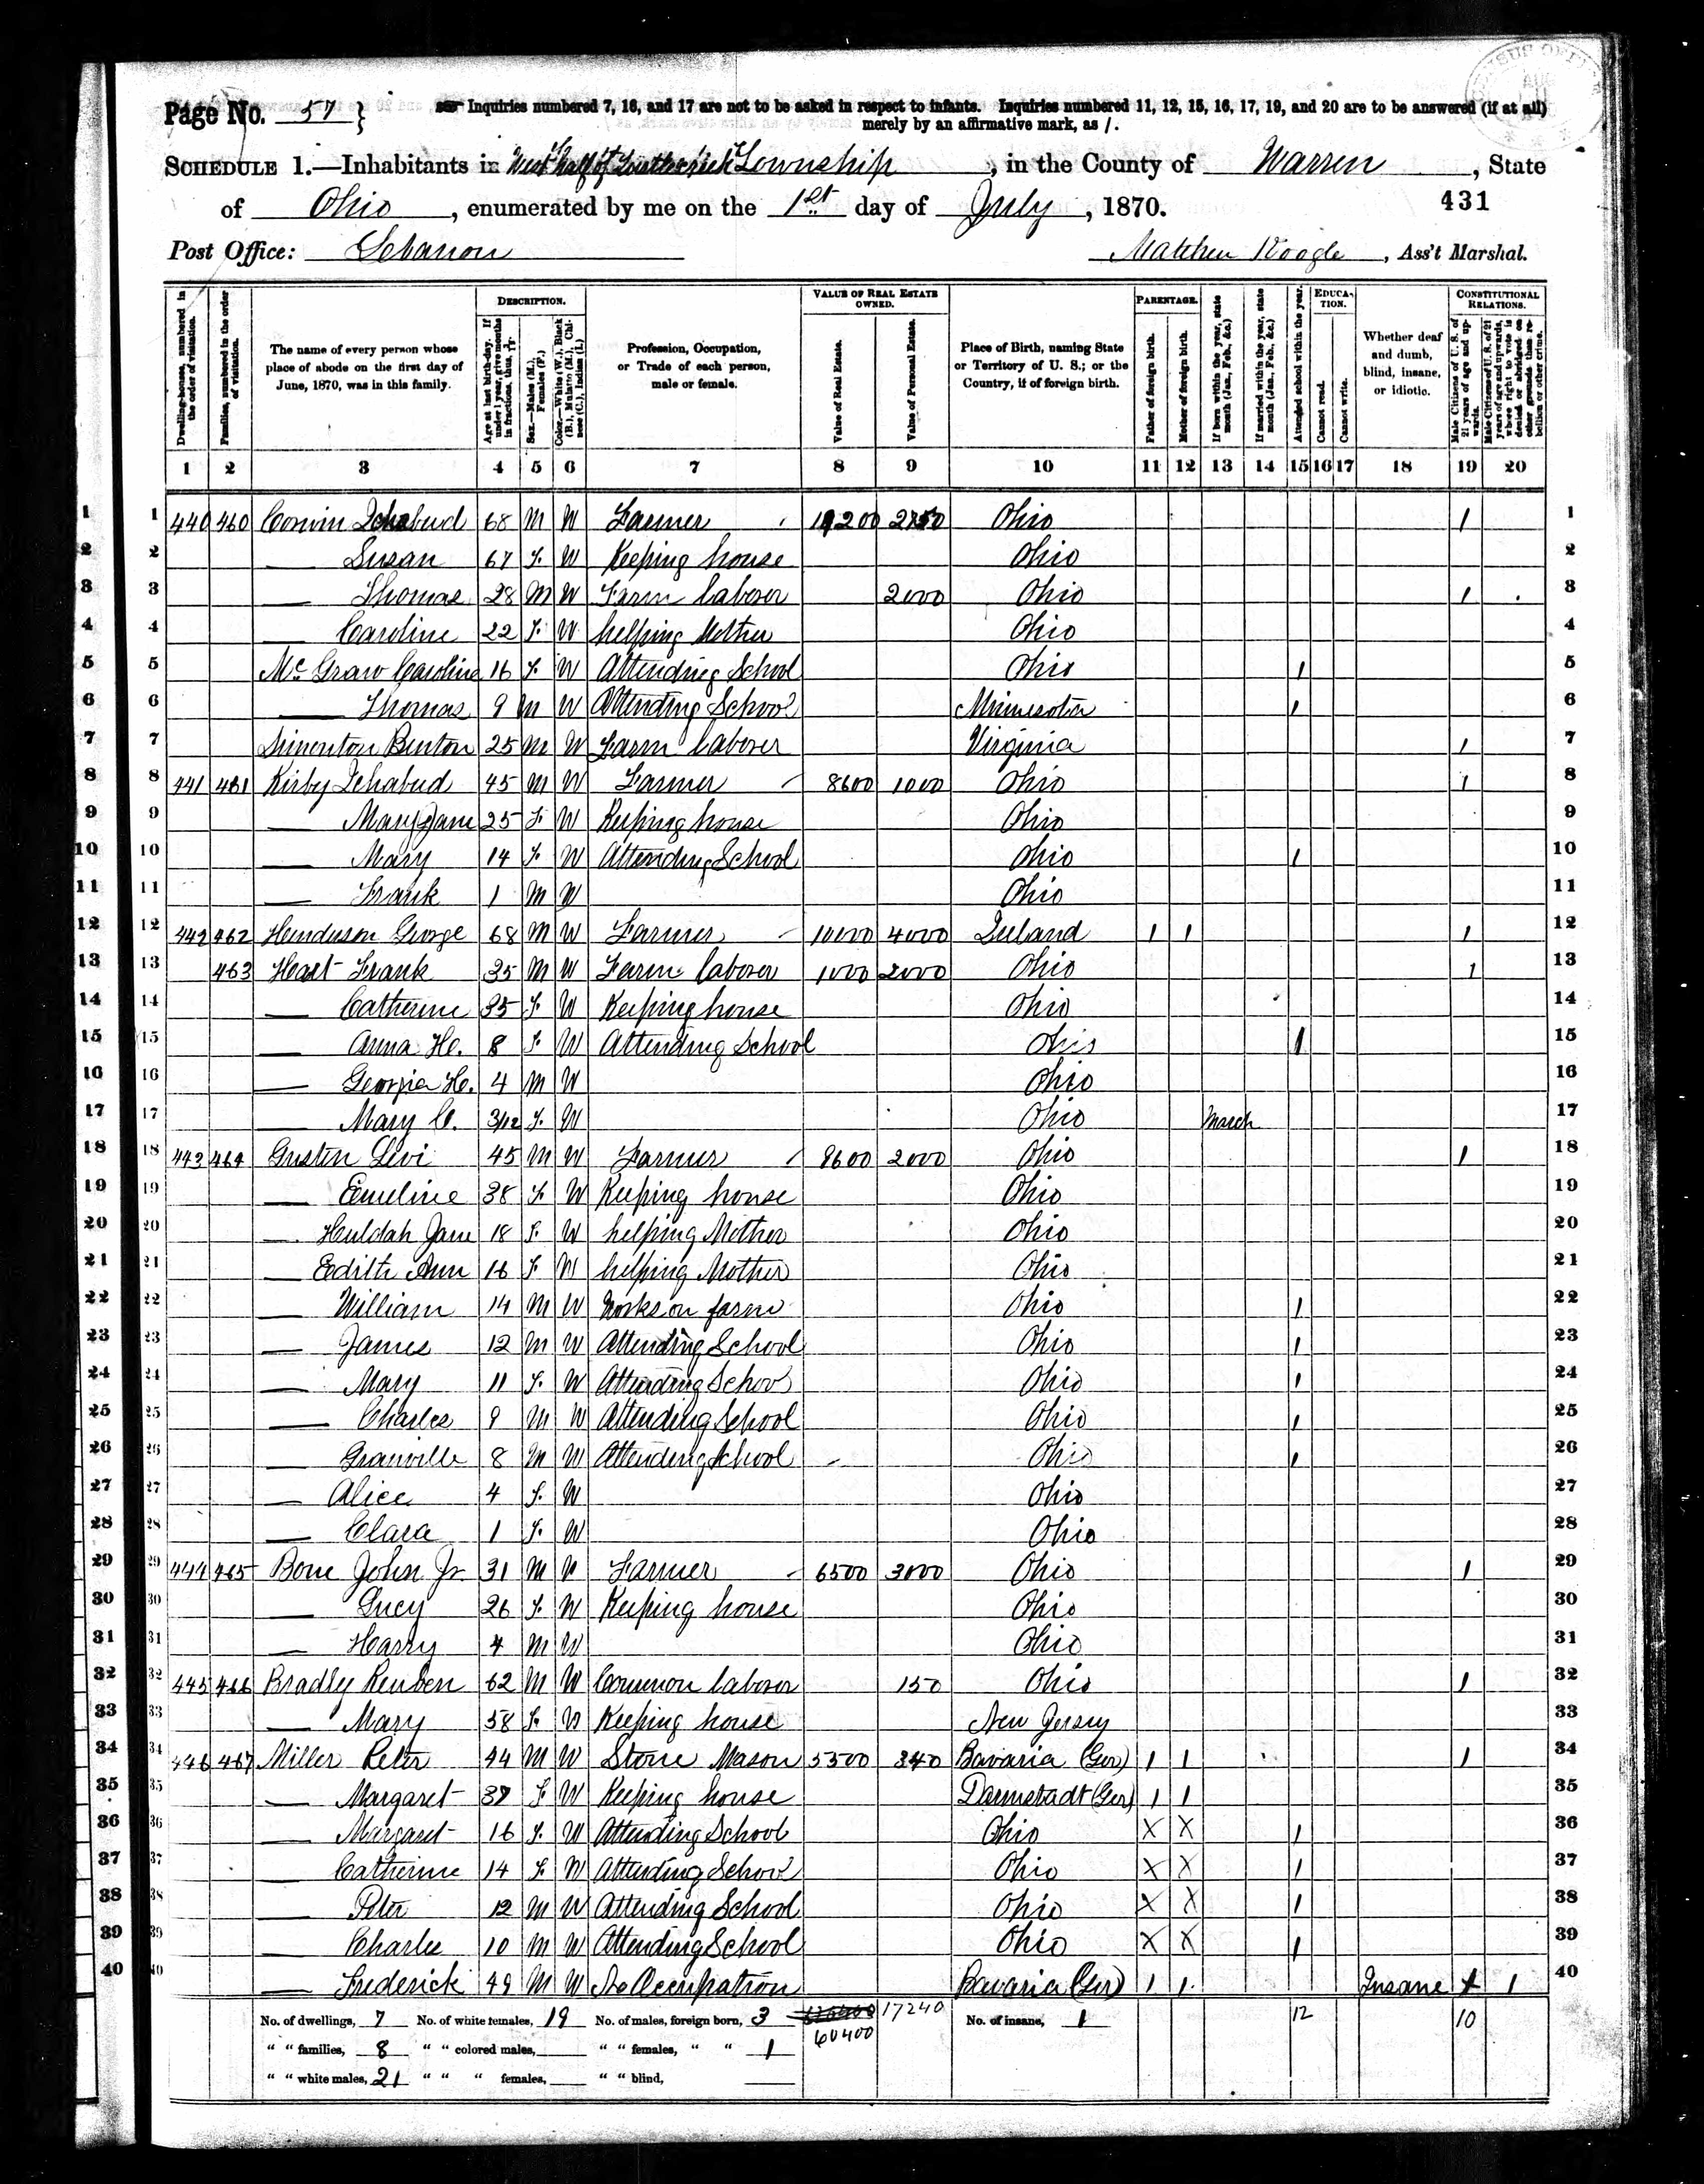 Page No. 57 } Inquiries numbered 7, 16, and 17 are not to be asked in respect to infants. Inquiries numbered 11, 12, 15, 16, 17, 19, and 20 are to be answered (if at all)
merely by an affirmative mark, as /.
SCHEDULE 1.—Inhabitants in West half of Township, in the County of Warren, State
of Ohio, enumerated by me on the 1st day of July, 1870. 431
Post Office: Lebanon Ass't Marshal.
Dwelling-house, numbered in the order of visitation. Families, numbered in the order of visitation. The name of every person whose place of abode on the first day of June, 1870, was in this family. DESCRIPTION. Age at last birth-day. If under 1 year, give months in fractions, thus, 3/12. Sex.—Males (M.), Females (F.) Color.—White (W.), Black (B.), Mulatto (M.), Chinese (C.), Indian (I.) Profession, Occupation, or Trade of each person, male or female. VALUE OF REAL ESTATE OWNED. Value of Real Estate. Value of Personal Estate. Place of Birth, naming State or Territory of U. S.; or the Country, if of foreign birth. PARENTAGE. Father of foreign birth. Mother of foreign birth. If born within the year, state month (Jan., Feb., &c.) If married within the year, state month (Jan., Feb., &c.) Attended school within the year. EDUCATION. Cannot read. Cannot write. Whether deaf and dumb, blind, insane, or idiotic. CONSTITUTIONAL RELATIONS. Male Citizens of U. S. of 21 years of age and upwards. Male Citizens of U. S. of 21 years of age and upwards, whose right to vote is denied or abridged on other grounds than rebellion or other crime.
1 2 3 4 5 6 7 8 9 10 11 12 13 14 15 16 17 18 19 20
1 1 440 460 Corwin Ichabud 68 M W Farmer Ohio / 1
2 2 — Susan 67 F. W Keeping house Ohio 2
3 3 — Thomas 28 M W Farm laborer 2000 Ohio / 3
4 4 — Caroline 22 F. W helping Mother Ohio 4
5 5 Mc Graw Caroline 16 F. W Attending School Ohio / 5
6 6 — Thomas 9 M W Attending School Minnesota / 6
7 7 Simonton Benton 25 M W Farm laborer Virginia / 7
8 8 441 461 Kirby Ichabud 45 M W Farmer 8600 1000 Ohio / 8
9 9 — Mary Jane 25 F. W Keeping house Ohio 9
10 10 — Mary 14 F. W Attending School Ohio / 10
11 11 — Frank 1 M W Ohio 11
12 12 442 462 Henderson George 68 M W Farmer 10000 4000 Ireland / / / 12
13 13 463 Hart Frank 35 M W Farm laborer 1000 2000 Ohio / 13
14 14 — Catherine 35 F. W Keeping house Ohio 14
15 15 — Anna H. 8 F. W Attending School Ohio / 15
16 16 — Georgia H. 4 M W Ohio 16
17 17 — Mary C. 3/12 F. W Ohio March 17
18 18 443 464 Gustin Levi 45 M W Farmer 8600 2000 Ohio / 18
19 19 — Emeline 38 F. W Keeping house Ohio 19
20 20 — Huldah Jane 18 F. W helping Mother Ohio 20
21 21 — Edith Ann 16 F. W helping Mother Ohio 21
22 22 — William 14 M W Works on farm Ohio / 22
23 23 — James 12 M W Attending School Ohio / 23
24 24 — Mary 11 F. W Attending School Ohio / 24
25 25 — Charles 9 M W Attending School Ohio / 25
26 26 — Granville 8 M W Attending School Ohio / 26
27 27 — Alice 4 F. W Ohio 27
28 28 — Clara 1 F. W Ohio 28
29 29 444 465 Bone John Jr. 31 M W Farmer 6500 3000 Ohio / 29
30 30 — Lucy 26 F. W Keeping house Ohio 30
31 31 — Harry 4 M W Ohio 31
32 32 445 466 Bradly Reuben 62 M W Common laborer 150 Ohio / 32
33 33 — Mary 58 F. W Keeping house New Jersey 33
34 34 446 467 Miller Peter 44 M W Stone Mason 5500 Bavaria (Ger) / / / 34
35 35 — Margaret F W Keeping house Darmstadt (Ger) / / 35
36 36 — Margaret 16 F. W Attending School Ohio X X / 36
37 37 — Catherine 14 F W Attending School Ohio X X / 37
38 38 — Peter 12 M W Attending School Ohio X X / 38
39 39 — Charles 10 M W Attending School Ohio X X / 39
40 40 — Frederick 49 M W No Occupation Bavaria (Ger) / / Insane / 40
No. of dwellings, 7 No. of white females, 19 No. of males, foreign born, 3 17240 No. of insane, 1 12 10
" " families, 8 " " colored males, " " females, " " 1 60400
" " white males, 21 " " " females, " " blind,